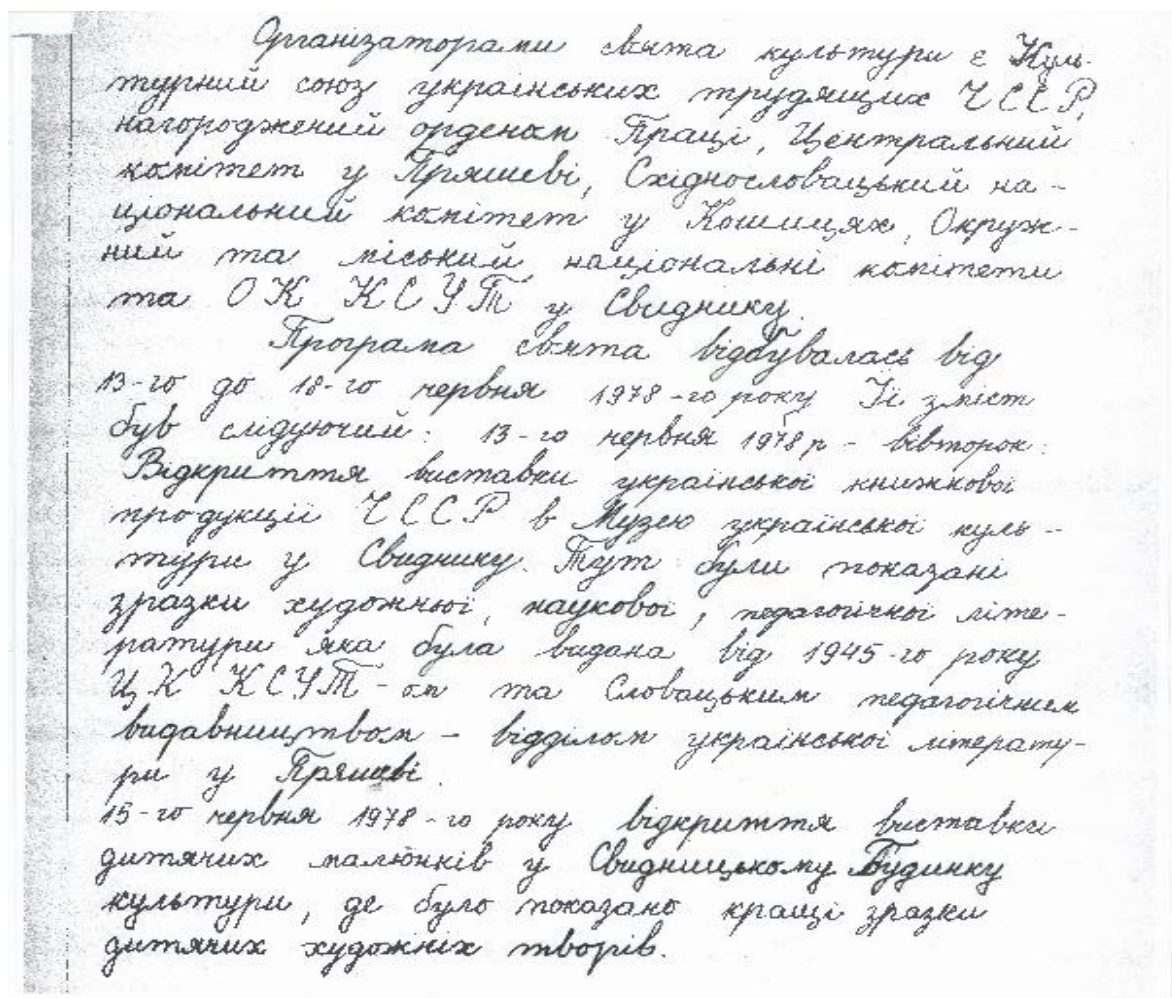 Організаторами свята культури є Куль-
турний союз українських трудящих ЧССР,
нагороджений орденом Праці, Центральний
комітет у Пряшеві, Східнословацький на-
ціональний комітет у Кошицях, Окруж-
ний та міський національні комітети
та ОК КСУТ у Свиднику.
Програма свята відбувалась від
13-го до 18-го червня 1978-го року Її зміст
був слідуючий: 13-го червня 1978 р - вівторок:
Відкриття виставки української книжкової
продукції ЧССР в Музею української куль-
тури у Свиднику. Тут були показані
зразки художньої, наукової, педагогічної літе-
ратури яка була видана від 1945-го року
ЦК КСУТ-ом та Словацьким педагогічним
видавництвом - відділом української літерату-
ри у Пряшеві.
15-го червня 1978-го року відкриття виставки
дитячих малюнків у Свидницькому Будинку
культури, де було показано кращі зразки
дитячих художніх творів.